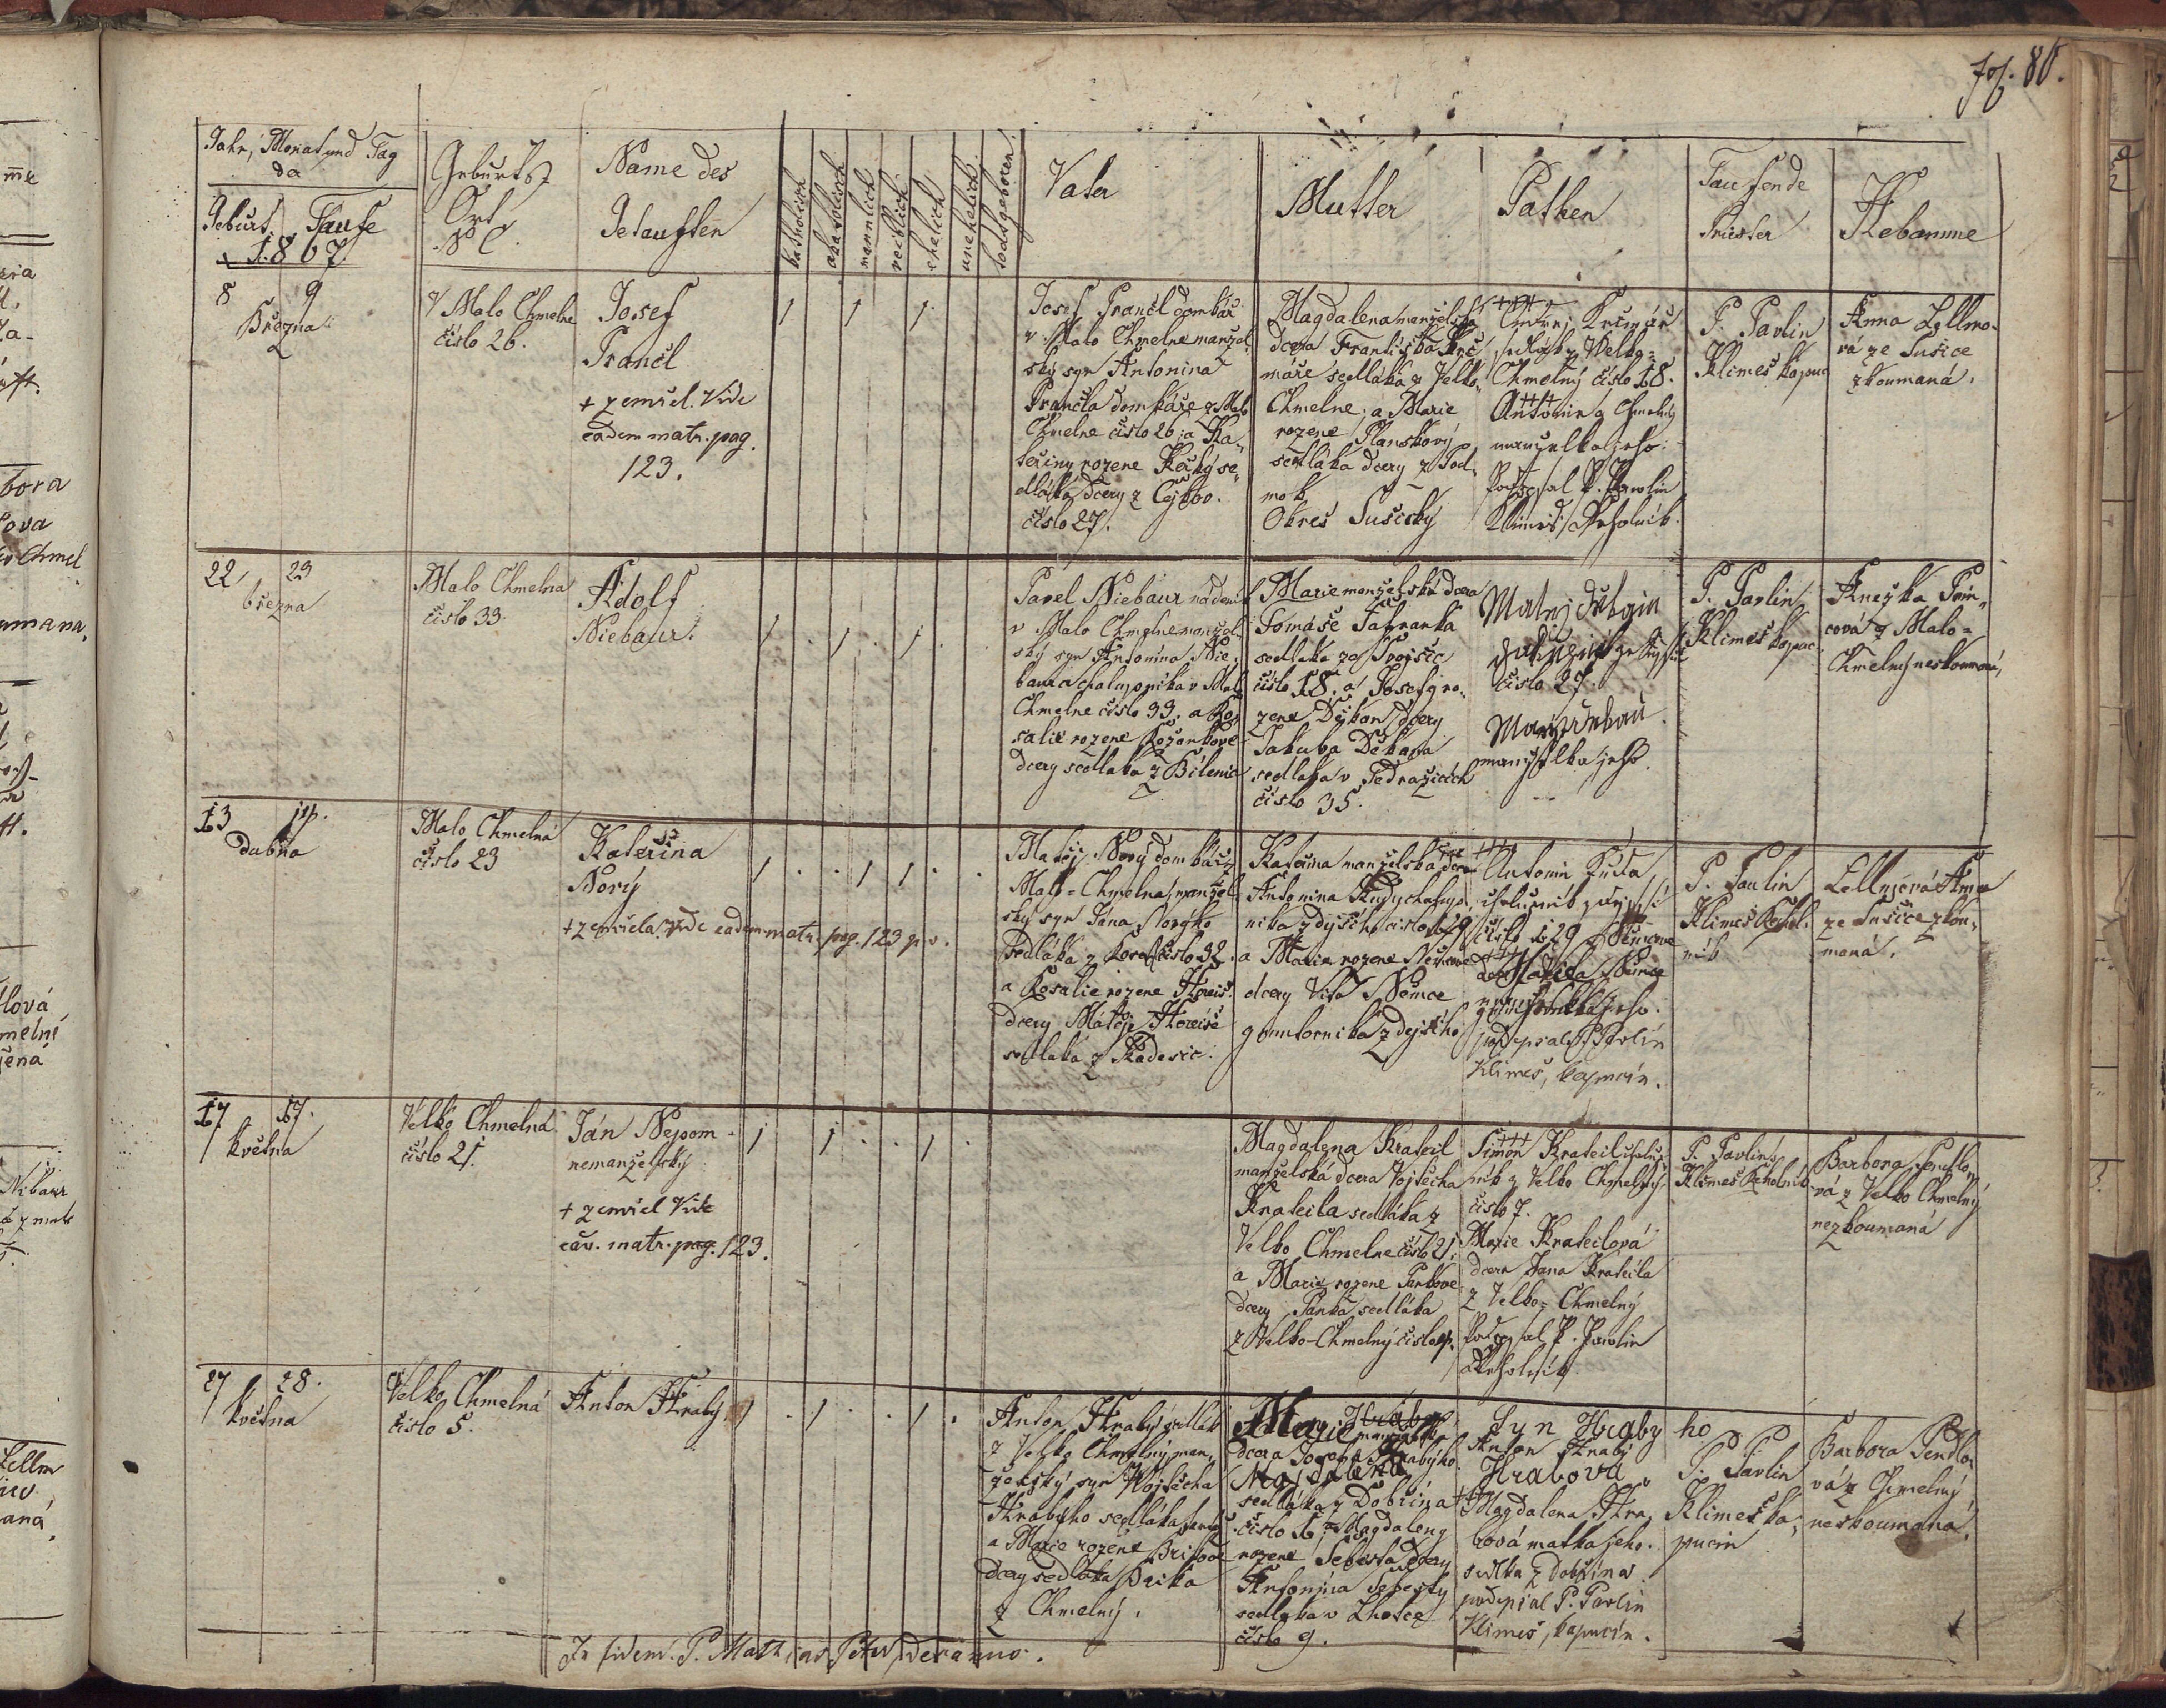 fol. 80.
Jahr, Monat und Tag
da
Geburt Taufe
1867
Geburts
Ort
N C.
Name des
Getauften
katholisch
akatolisch
männlich
weiblich
ehelich
unehelich
todtgeboren
Vater
Mutter
Pathen
Taufende
Priester
Hebamme
8 9
Března
V Malo Chmelne
číslo 26.
Josef
Prančl
+ zemřel. Vide
eadem matr. pag.
123.
1 1 1
Josef Prančl domkář
v Malo Chmelne manžel-
ský syn Antonina
Prančla domkáře z Malo
Chmelne číslo 26, a Ka-
teřiny rozene
dcery z
číslo 27.
Magdalena manželská
dcera Františka Krč
máře sedláka z Velko
Chmelne, a Marie
rozene
sedláka dcery z Pod-
mok
Okres Sušický
+++
Ondrej Krčmář
sedlák z Velko-
Chmelný číslo 18.
+++
z Chmelný
manželka jeho.
Podepsal P. Pavlin
Klimeš,
P. Pavlin
Klimeš kapuc
Anna Zellmo-
vá ze Sušice
zkoumaná.
22 23
března
Malo Chmelna
číslo 33.
Adolf
Niebaur.
1 . 1 . 1 .
Pavel Niebaur nádeník
v Malo Chmelne manžel-
ský syn Antonína Nie-
baura chalupníka v Malo
Chmelne číslo 33. a Ro-
salie rozene
dcery sedláka z Bílenic
Marie manželská dcera
Tomáše
sedláka ze Svojšic
číslo 18. a Josefy ro-
zene Děkan dcery
Jakuba Děkana
sedláka v Pedražicích
číslo 35.
Matej
číslo 27.
manželka jeho.
P. Pavlin
Klimeš kapuc.
Anežka
cová z Malo-
Chmelný neskoumaná,
13 14.
dubna
Malo Chmelná
číslo 23
Kateřina
Nový
+ zemřela. vide eadem matr. pag. 123 p. v.
1 . . 1 1 . .
Matěj Nový domkář z
Malo-Chmelna, manžel-
ský syn Jána Nového
sedláka z číslo 32.
a Rosalie rozene Horejš
dcery Matěje Horejše
sedláka z Kadešic.
Kateřina manželská dcera
Antonina Kudy chalup-
nika zdejšího číslo 129
a Marie rozene Němcove
dcery Vita Němce
gruntovnika zdejšího
+++
Antonin Kuda,
chalupník zdejší
číslo 129
manželka jeho.
podepsal P. Pavlín
Klimeš, kapucín.
P. Pavlin
Klimeš
Zellnjová Anna
ze Sušice zkou-
maná.
17 17.
května
Velko Chmelná
číslo 21.
Ján Nepom-
nemanželský
+ zemřel Vide
ead. matr. pag. 123.
1 1 . . 1 .
Magdalena Krateil
manželská dcera Vojtěcha
Krateila sedláka z
Velko Chmelne číslo 21.
a Marie rozene Pankove
dcery Panka sedláka
z Velko-Chmelný číslo
+++
Šimon Krateil chalup-
ník z Velko Chmelný
číslo 7.
Marie Krateilová
dcera Jana Krateila
z Velko-Chmelný
Podepsal P. Pavlin
P. Pavlin
Klimeš Řeholník
Barbora Pendlo-
vá z Velko Chmelný
nezkoumaná
27 28.
května
Velko Chmelná
číslo 5.
Anton Hrabý
1 . 1 . . 1 .
Anton Hrabý sedlák
z Velko Chmelný man-
želský syn Vojtěcha
Hrabýho sedláka tamtéž
a Marie rozene
dcery sedláka
z Chmelný.
Marie Hrabý
manželská
dcera Josefa Hrabýho
Majdalena
sedláka z Dobřína
číslo 16. Magdaleny
rozene Šebesta dcery
Antonína Šebesty
sedláka v Lhotce
číslo 9.
Syn Hrabý ho
Anton Hrabý
Hrabová
+++
Magdalena Hra-
bová matka jeho.
sedlka z Dobřína
podepsal P. Pavlin
Klimeš, kapucín.
P. Pavlin
Klimeš ka-
pucin
Barbora Pendlo-
vá z Chmelný
neskoumaná.
In fidem. P. Mathias